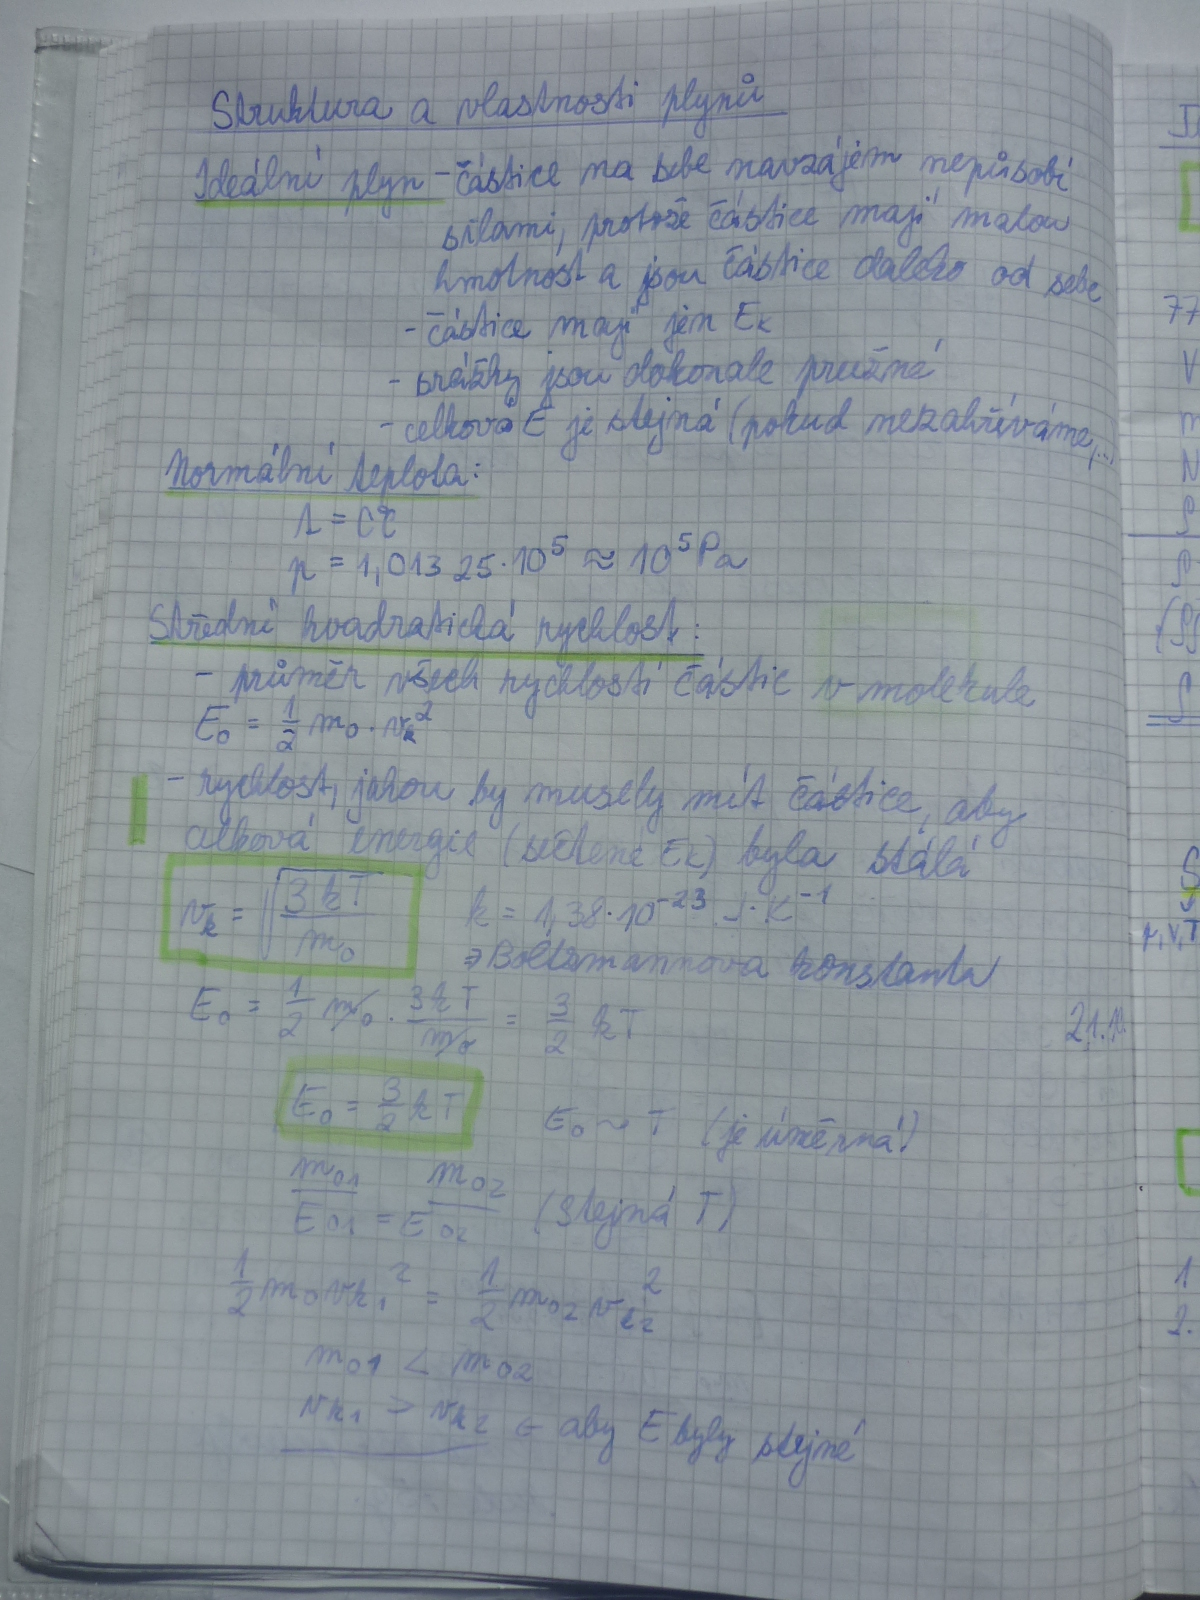 Struktura a vlastnosti plynů
Ideální plyn - částice na sebe navzájem nepůsobí
silami, protože částice mají malou
hmotnost a jsou částice daleko od sebe
- částice mají jen Eₖ
- srážky jsou dokonale pružné
- celková E je stejná (pokud nezahříváme,...
Normální teplota:
t = 0°C
p = 1,01325·10⁵ ≈ 10⁵ Pa
Střední kvadratická rychlost:
- průměr všech rychlostí částic v molekule
E₀ = 1/2 m₀ · vₖ²
- rychlost, jakou by musely mít částice, aby
celková energie (sečtené Eₖ) byla stálá
vₖ = √(3kT/m₀) k = 1,38·10⁻²³ J·K⁻¹
⇒ Boltzmannova konstanta
E₀ = 1/2 m₀ · 3kT/m₀ = 3/2 kT
E₀ = 3/2 kT E₀ ~ T (je úměrná!)
m₀₁ m₀₂
E₀₁ = E₀₂ (stejná T)
1/2 m₀vₖ₁² = 1/2 m₀₂vₖ₂²
m₀₁ < m₀₂
vₖ₁ > vₖ₂ ← aby E byly stejné
77
V
N
p,V,T
21.1
1.
2.